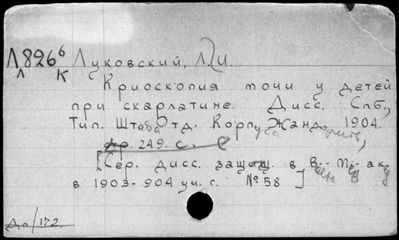 Л826⁶ Луковский, Л. И.
Л К
Криоскопия мочи у детей
при скарлатине. Дисс. Спб,
Тип. Штаба Отд. Корпуса Жандармов, 1904.
249. с.
[Сер. дисс. защищ. в В.-М. ак.
в 1903-904 уч. г. № 58]
Да/172